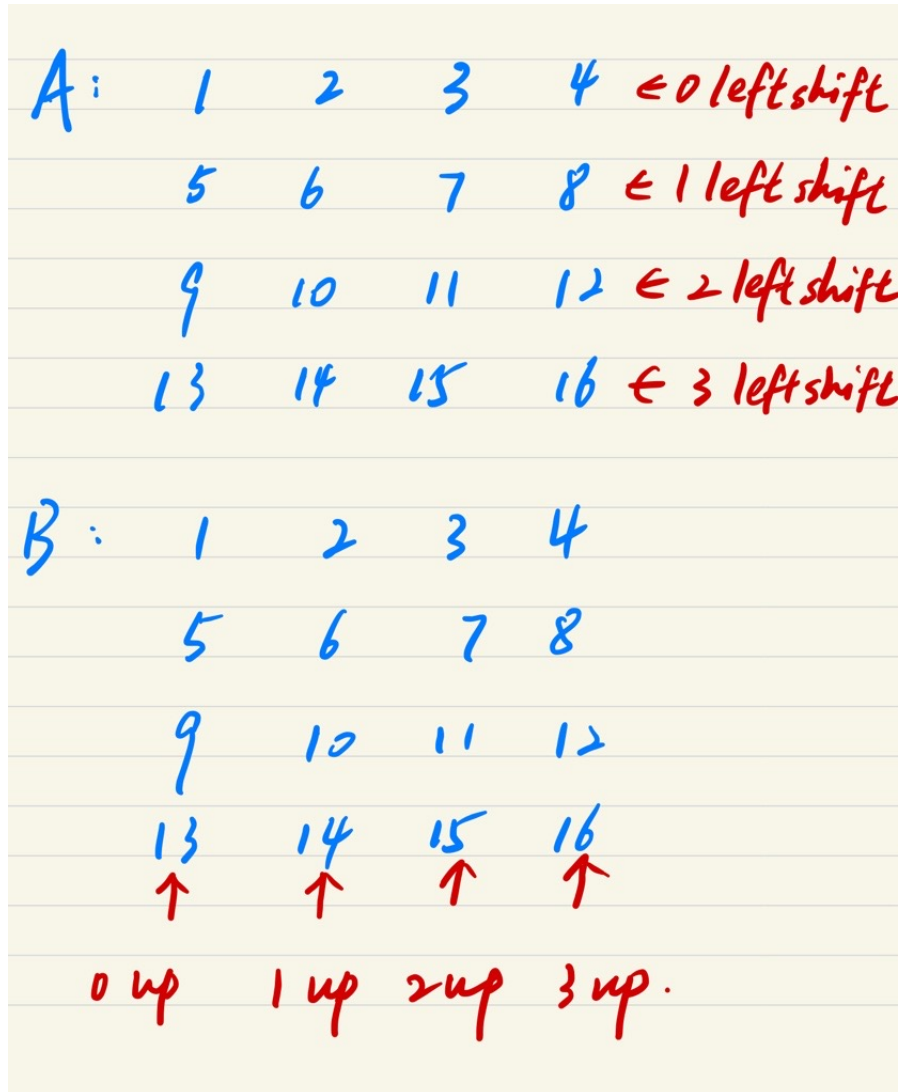 A: 1 2 3 4 ← 0 left shift
5 6 7 8 ← 1 left shift
9 10 11 12 ← 2 left shift
13 14 15 16 ← 3 left shift
B: 1 2 3 4
5 6 7 8
9 10 11 12
13 14 15 16
↑ ↑ ↑ ↑
0 up 1 up 2 up 3 up.